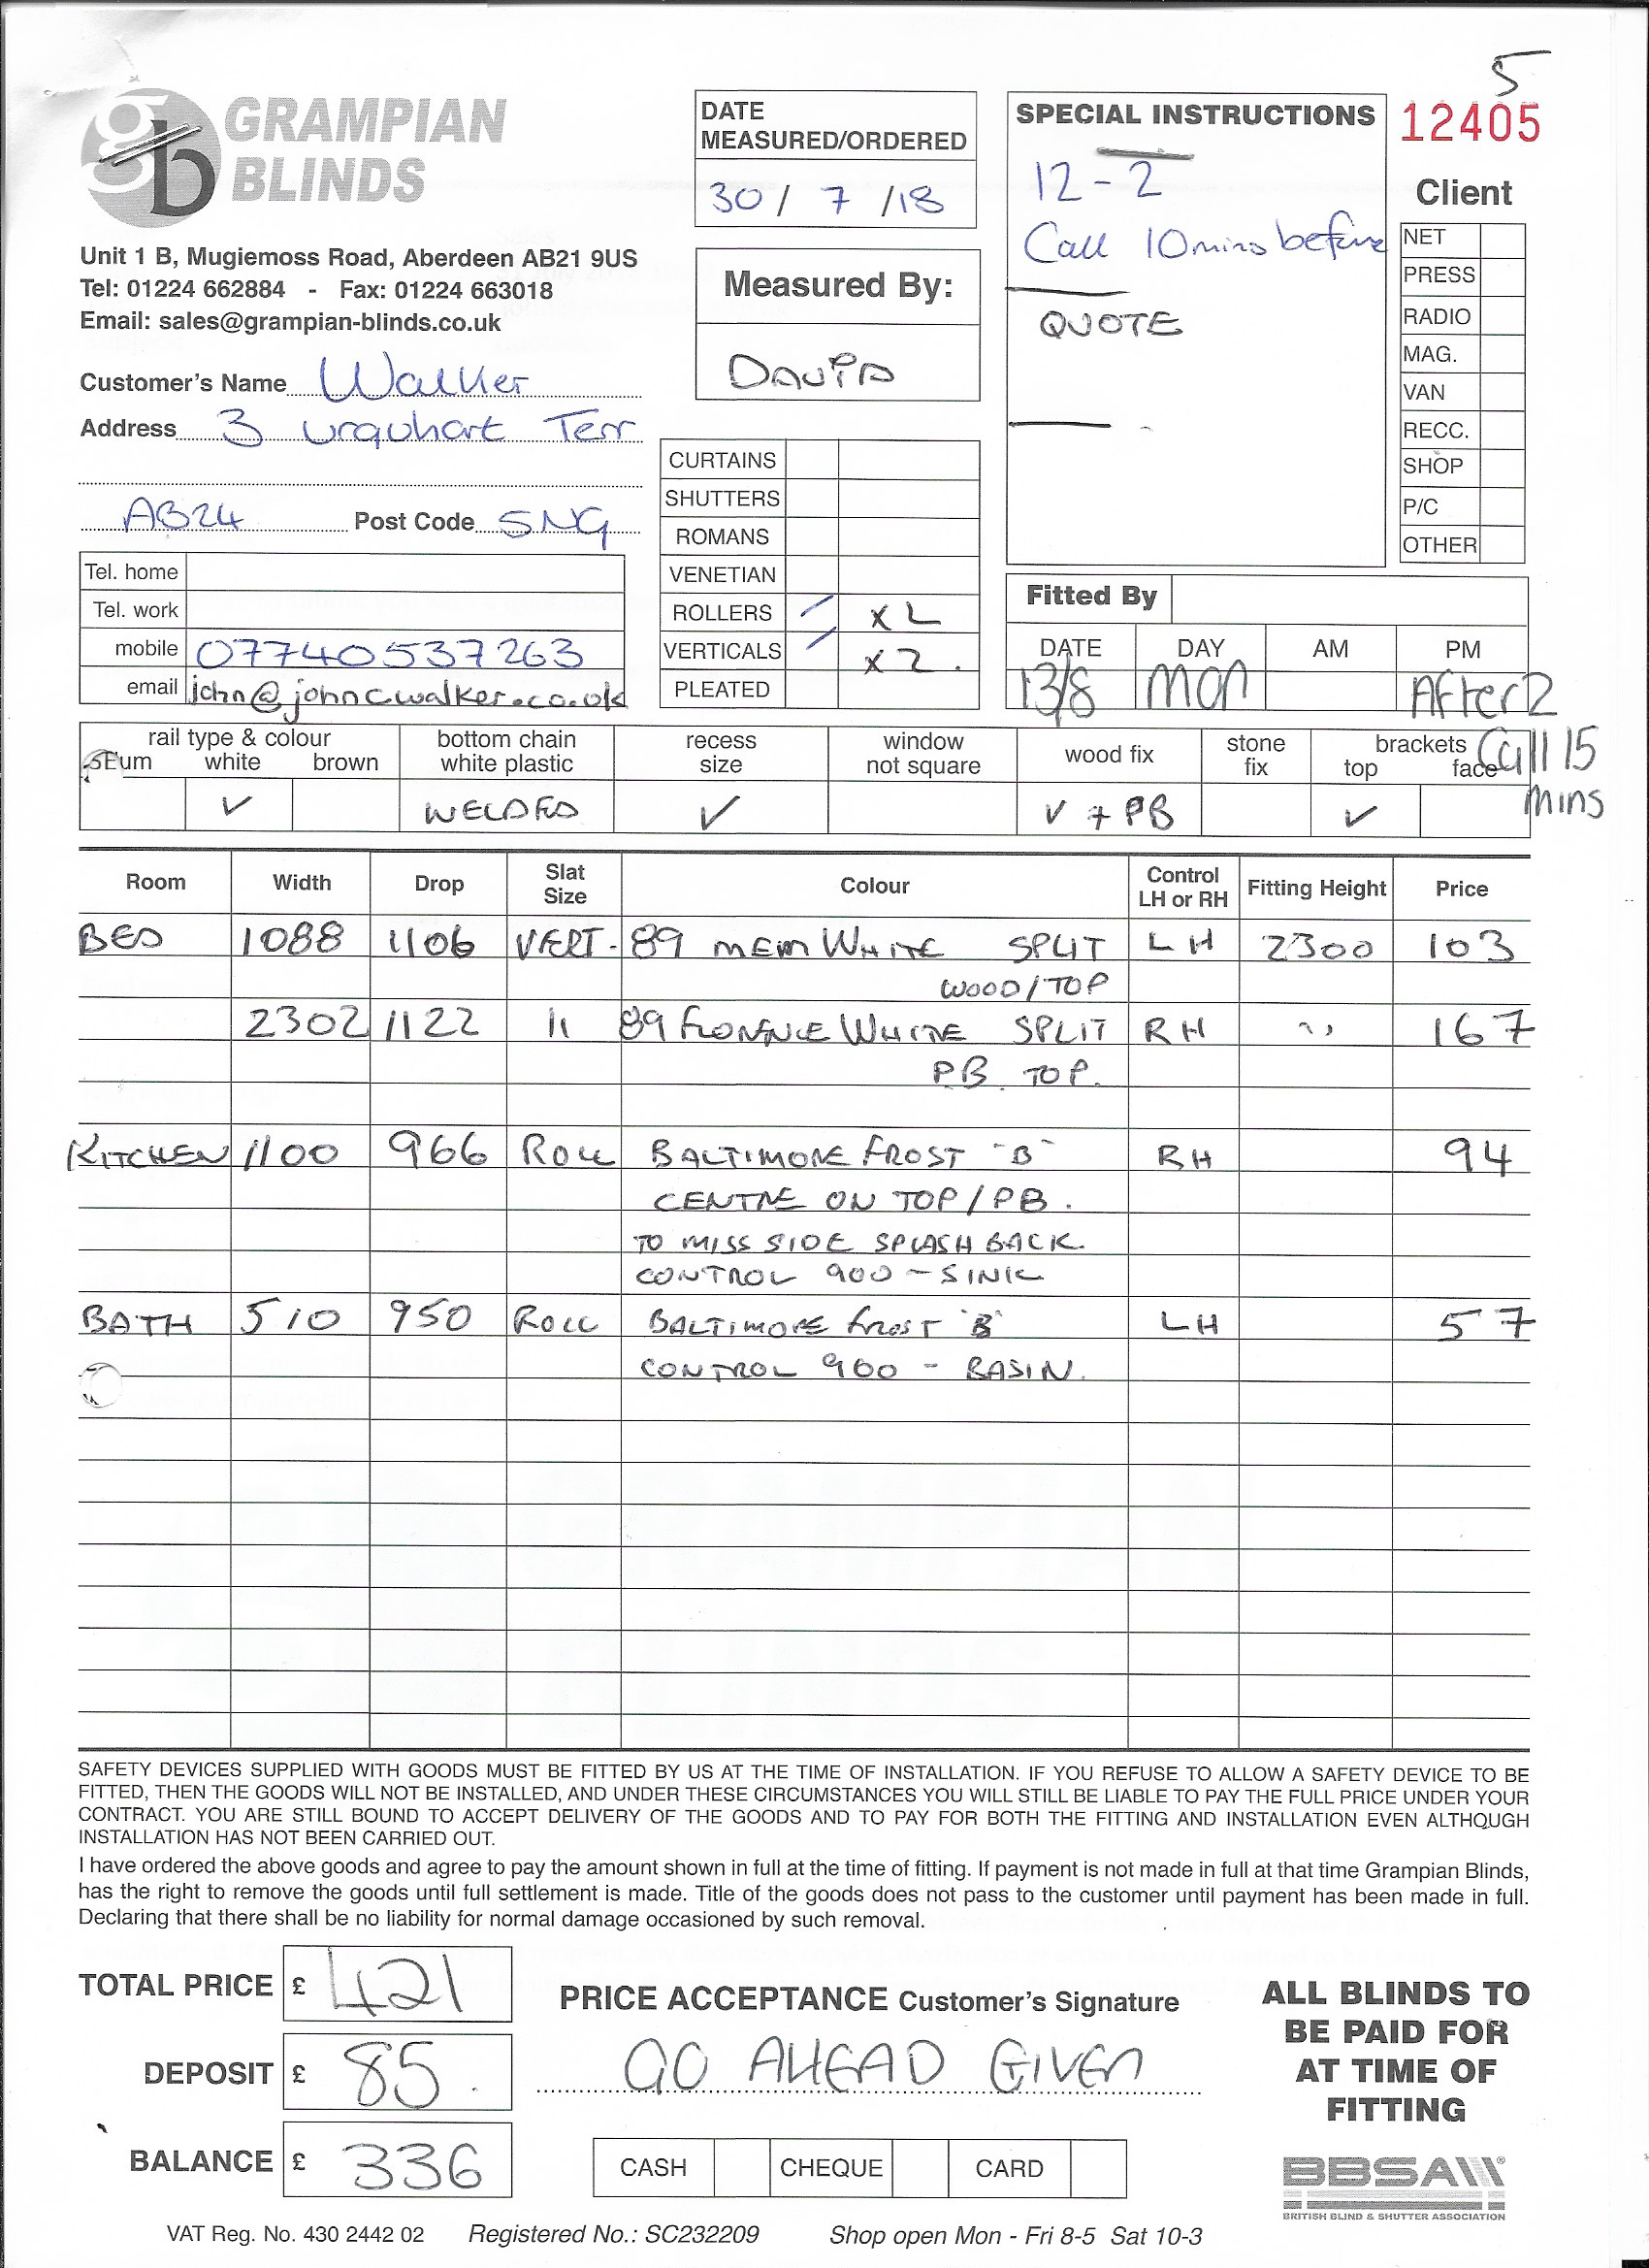 5
12405
gb GRAMPIAN
BLINDS
Unit 1 B, Mugiemoss Road, Aberdeen AB21 9US
Tel: 01224 662884 - Fax: 01224 663018
Email: sales@grampian-blinds.co.uk
Customer's Name Walker
Address 3 Urquhart Terr
AB24 Post Code 5NG
Tel. home
Tel. work
mobile 07740537263
email john@johncwalker.co.uk
DATE
MEASURED/ORDERED
30 / 7 /18
Measured By:
DAVID
CURTAINS
SHUTTERS
ROMANS
VENETIAN
ROLLERS / x 2
VERTICALS / x 2.
PLEATED
SPECIAL INSTRUCTIONS
12-2
Call 10mins before
QUOTE
Client
NET
PRESS
RADIO
MAG.
VAN
RECC.
SHOP
P/C
OTHER
Fitted By
DATE DAY AM PM
13/8 Mon After 2
Call 15
mins
rail type & colour bottom chain recess window wood fix stone brackets
um white brown white plastic size not square fix top face
✓ WELDED ✓ ✓ + PB ✓
Room Width Drop Slat Size Colour Control LH or RH Fitting Height Price
BED 1088 1106 VERT- 89 MEM WHITE SPLIT LH 2300 103
WOOD/TOP
2302 1122 11 89 FLORENCE WHITE SPLIT RH " 167
PB TOP.
KITCHEN 1100 966 ROLL BALTIMORE FROST "B" RH 94
CENTRE ON TOP/PB.
TO MISS SIDE SPLASH BACK.
CONTROL 900 - SINK
BATH 510 950 ROLL BALTIMORE FROST "B" LH 57
CONTROL 900 - BASIN.
SAFETY DEVICES SUPPLIED WITH GOODS MUST BE FITTED BY US AT THE TIME OF INSTALLATION. IF YOU REFUSE TO ALLOW A SAFETY DEVICE TO BE
FITTED, THEN THE GOODS WILL NOT BE INSTALLED, AND UNDER THESE CIRCUMSTANCES YOU WILL STILL BE LIABLE TO PAY THE FULL PRICE UNDER YOUR
CONTRACT. YOU ARE STILL BOUND TO ACCEPT DELIVERY OF THE GOODS AND TO PAY FOR BOTH THE FITTING AND INSTALLATION EVEN ALTHOUGH
INSTALLATION HAS NOT BEEN CARRIED OUT.
I have ordered the above goods and agree to pay the amount shown in full at the time of fitting. If payment is not made in full at that time Grampian Blinds,
has the right to remove the goods until full settlement is made. Title of the goods does not pass to the customer until payment has been made in full.
Declaring that there shall be no liability for normal damage occasioned by such removal.
TOTAL PRICE £ 421
DEPOSIT £ 85.
BALANCE £ 336
PRICE ACCEPTANCE Customer's Signature
GO AHEAD GIVEN
CASH CHEQUE CARD
ALL BLINDS TO
BE PAID FOR
AT TIME OF
FITTING
BBSA
BRITISH BLIND & SHUTTER ASSOCIATION
VAT Reg. No. 430 2442 02 Registered No.: SC232209 Shop open Mon - Fri 8-5 Sat 10-3